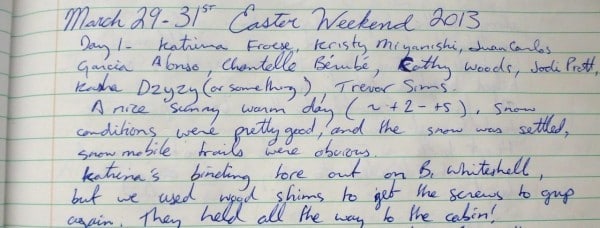 March 29-31ST Easter Weekend 2013
Day 1 - Katrina Froese, Kristy Miyanishi, Juan Carlos
Garcia Alonso, Chantelle Bérubé, Cathy Woods, Jodi Prott,
Kasha Dzyzy (or something), Trevor Sims.
A nice sunny warm day (~ +2 - +5). Snow
conditions were pretty good, and the snow was settled,
snowmobile trails were obvious.
Katrina's binding tore out on B. Whiteshell,
but we used wood shims to get the screws to grip
again. They held all the way to the cabin!